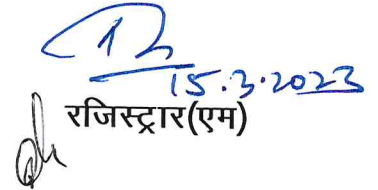 15.3.2023
रजिस्ट्रार(एम)